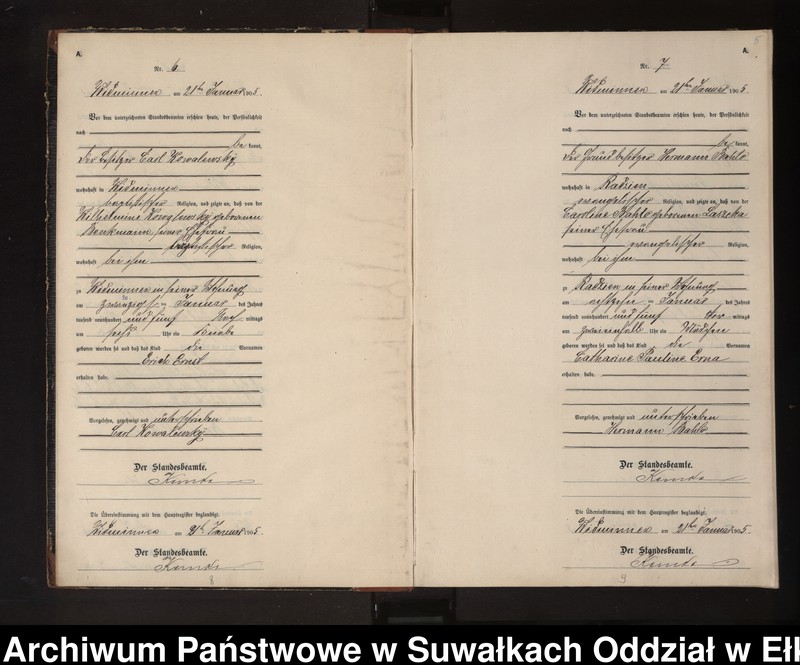 A.
Nr. 6
Widminnen am 21ten Januar 1905.
Vor dem unterzeichneten Standesbeamten erschien heute, der Persönlichkeit
nach
be kannt,
der Besitzer Carl Kowalewsky,
wohnhaft in Widminnen
baptistischer Religion, und zeigte an, daß von der
Wilhelmine Kowalewsky geborenen
seiner Ehefrau
baptistischer Religion,
wohnhaft bei ihm
zu Widminnen in seiner Wohnung
am zwanzigsten Januar des Jahres
tausend neunhundert und fünf Nach mittags
um sechs Uhr ein Knabe
geboren worden sei und daß das Kind die Vornamen
Erich Ernst
erhalten habe.
Vorgelesen, genehmigt und unterschrieben
Carl Kowalewsky
Der Standesbeamte.
Die Übereinstimmung mit dem Hauptregister beglaubigt.
Widminnen am 21ten Januar 1905.
Der Standesbeamte.
8
A.
Nr. 7
Widminnen am 21ten Januar 1905.
Vor dem unterzeichneten Standesbeamten erschien heute, der Persönlichkeit
nach
be kannt,
der Grundbesitzer Hermann Bahlo
wohnhaft in Radzien
evangelischer Religion, und zeigte an, daß von der
Caroline Bahlo geborenen
seiner Ehefrau
evangelischer Religion,
wohnhaft bei ihm
zu Radzien in seiner Wohnung
am achtzehnten Januar des Jahres
tausend neunhundert und fünf Vor mittags
um Uhr ein Mädchen
geboren worden sei und daß das Kind die Vornamen
Catharine Pauline Erna
erhalten habe.
Vorgelesen, genehmigt und unterschrieben
Hermann Bahlo
Der Standesbeamte.
Die Übereinstimmung mit dem Hauptregister beglaubigt.
Widminnen am 21ten Januar 1905.
Der Standesbeamte.
9
Archiwum Państwowe w Suwałkach Oddział w Eł